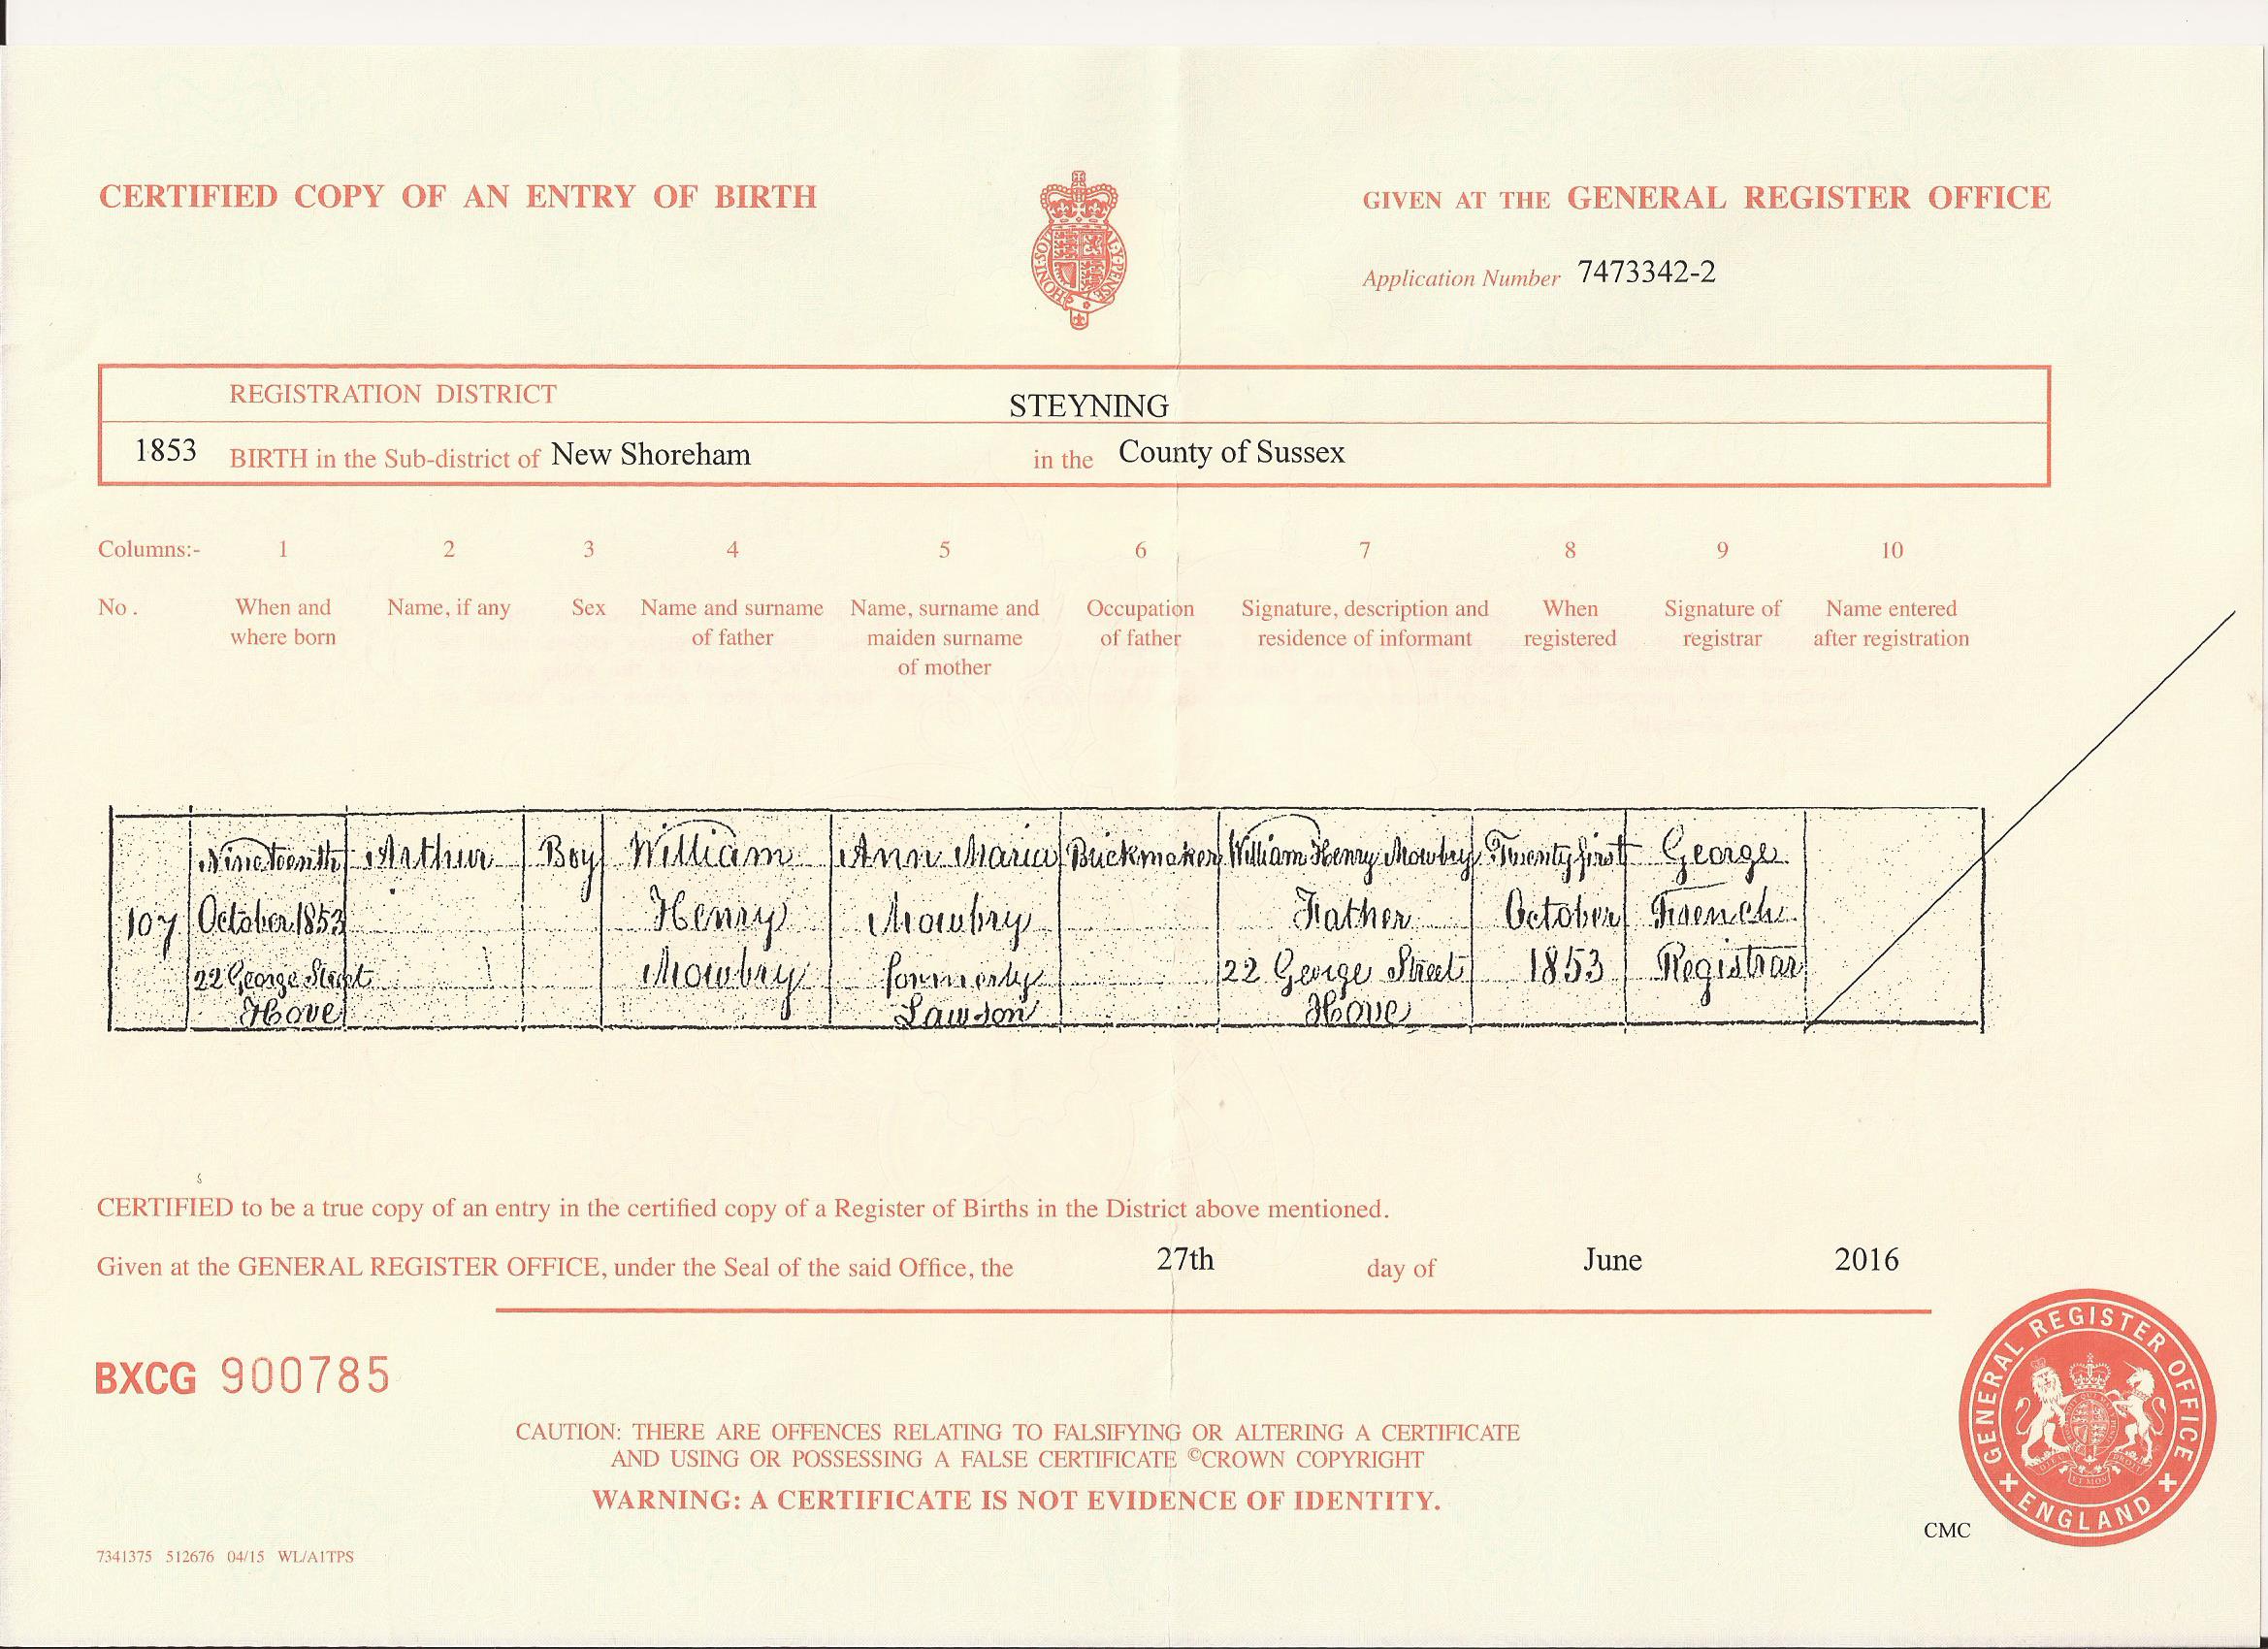 CERTIFIED COPY OF AN ENTRY OF BIRTH
GIVEN AT THE GENERAL REGISTER OFFICE
HONI·SOIT AL·Y·PENSE
Application Number 7473342-2
REGISTRATION DISTRICT STEYNING
1853 BIRTH in the Sub-district of New Shoreham in the County of Sussex
Columns:- 1 2 3 4 5 6 7 8 9 10
No. When and Name, if any Sex Name and surname Name, surname and Occupation Signature, description and When Signature of Name entered
where born of father maiden surname of father residence of informant registered registrar after registration
of mother
Nineteenth Arthur Boy William Ann Maria Brickmaker William Henry Mowbry Twenty first George
107 October 1853 Henry Mowbry Father October French
22 George Street Mowbry formerly 22 George Street 1853 Registrar
Hove Lawson Hove
CERTIFIED to be a true copy of an entry in the certified copy of a Register of Births in the District above mentioned.
Given at the GENERAL REGISTER OFFICE, under the Seal of the said Office, the 27th day of June 2016
BXCG 900785
GENERAL REGISTER OFFICE
ENGLAND
CAUTION: THERE ARE OFFENCES RELATING TO FALSIFYING OR ALTERING A CERTIFICATE
AND USING OR POSSESSING A FALSE CERTIFICATE ©CROWN COPYRIGHT
WARNING: A CERTIFICATE IS NOT EVIDENCE OF IDENTITY.
CMC
7341375 512676 04/15 WL/A1TPS